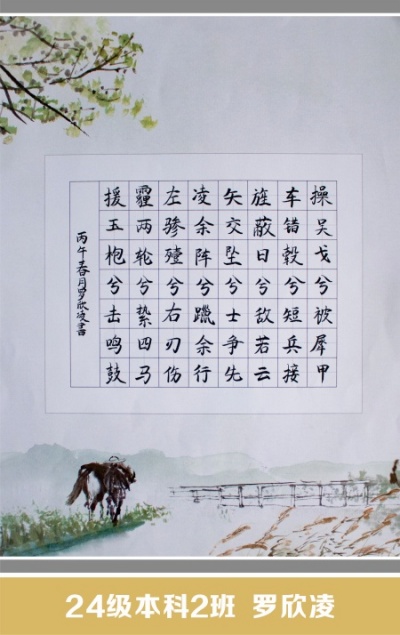 操吴戈兮被犀甲
车错毂兮短兵接
旌蔽日兮敌若云
矢交坠兮士争先
凌余阵兮躐余行
左骖殪兮右刃伤
霾两轮兮絷四马
援玉枹兮击鸣鼓
丙午春月罗欣凌书
24级本科2班 罗欣凌